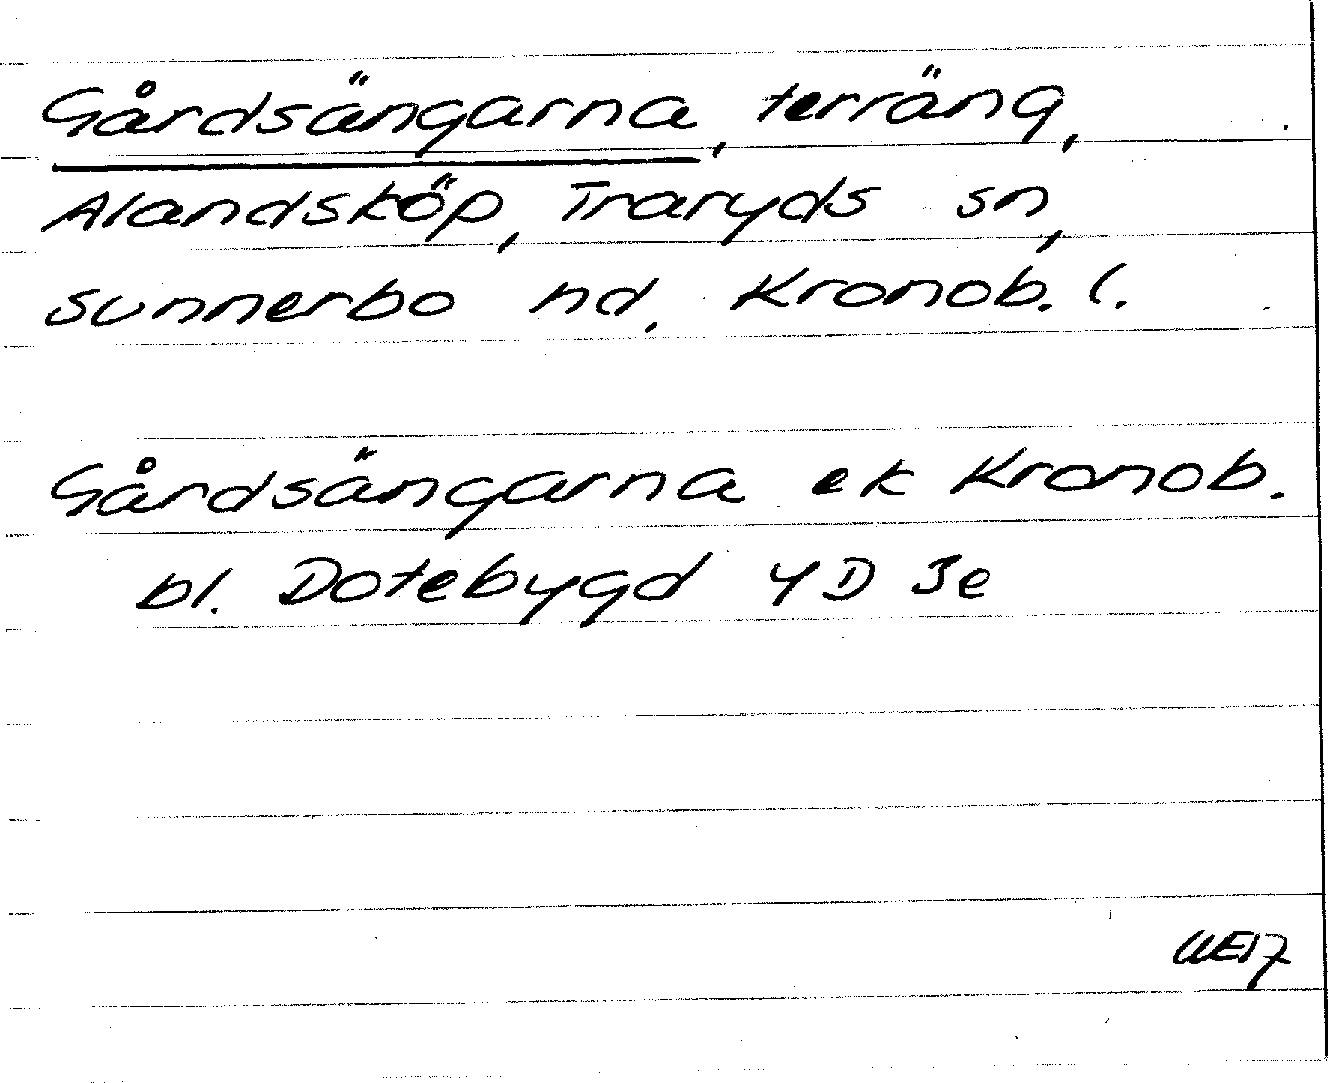 Gårdsängarna, terräng,
Alandsköp, Traryds sn,
Sunnerbo hd, Kronob. l.
Gårdsängarna ek Kronob.
bl. Dotebygd 4D 3e